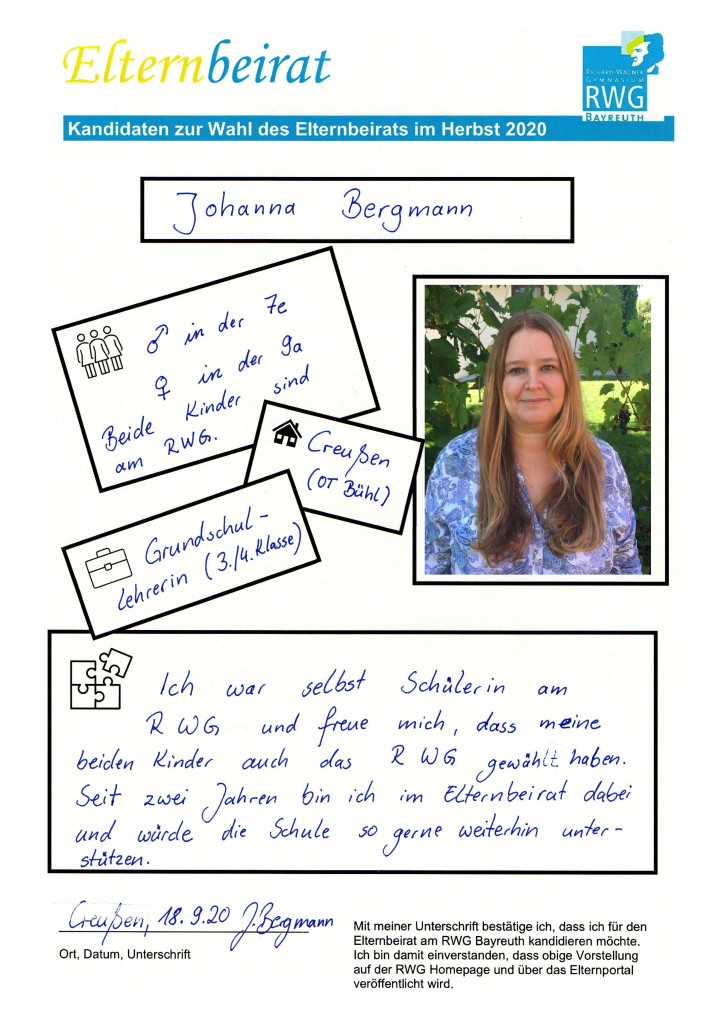 Elternbeirat
RICHARD-WAGNER
GYMNASIUM
RWG
BAYREUTH
Kandidaten zur Wahl des Elternbeirats im Herbst 2020
Johanna Bergmann
♂ in der 7e
♀ in der 9a
Beide Kinder sind
am RWG.
Creußen
(OT Bühl)
Grundschul-
lehrerin (3./4. Klasse)
Ich war selbst Schülerin am
RWG und freue mich, dass meine
beiden Kinder auch das RWG gewählt haben.
Seit zwei Jahren bin ich im Elternbeirat dabei
und würde die Schule so gerne weiterhin unter-
stützen.
Creußen, 18.9.20 J. Bergmann
Ort, Datum, Unterschrift
Mit meiner Unterschrift bestätige ich, dass ich für den
Elternbeirat am RWG Bayreuth kandidieren möchte.
Ich bin damit einverstanden, dass obige Vorstellung
auf der RWG Homepage und über das Elternportal
veröffentlicht wird.